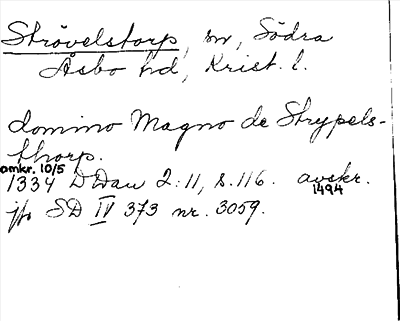 Strövelstorp, sn, Södra
Åsbo hd, Krist. l.
domino Magno de Strypels-
thorp.
omkr. 10/5
1334 DDan 2:11, s. 116. avskr.
1494
jfr SD IV 373 nr. 3059.